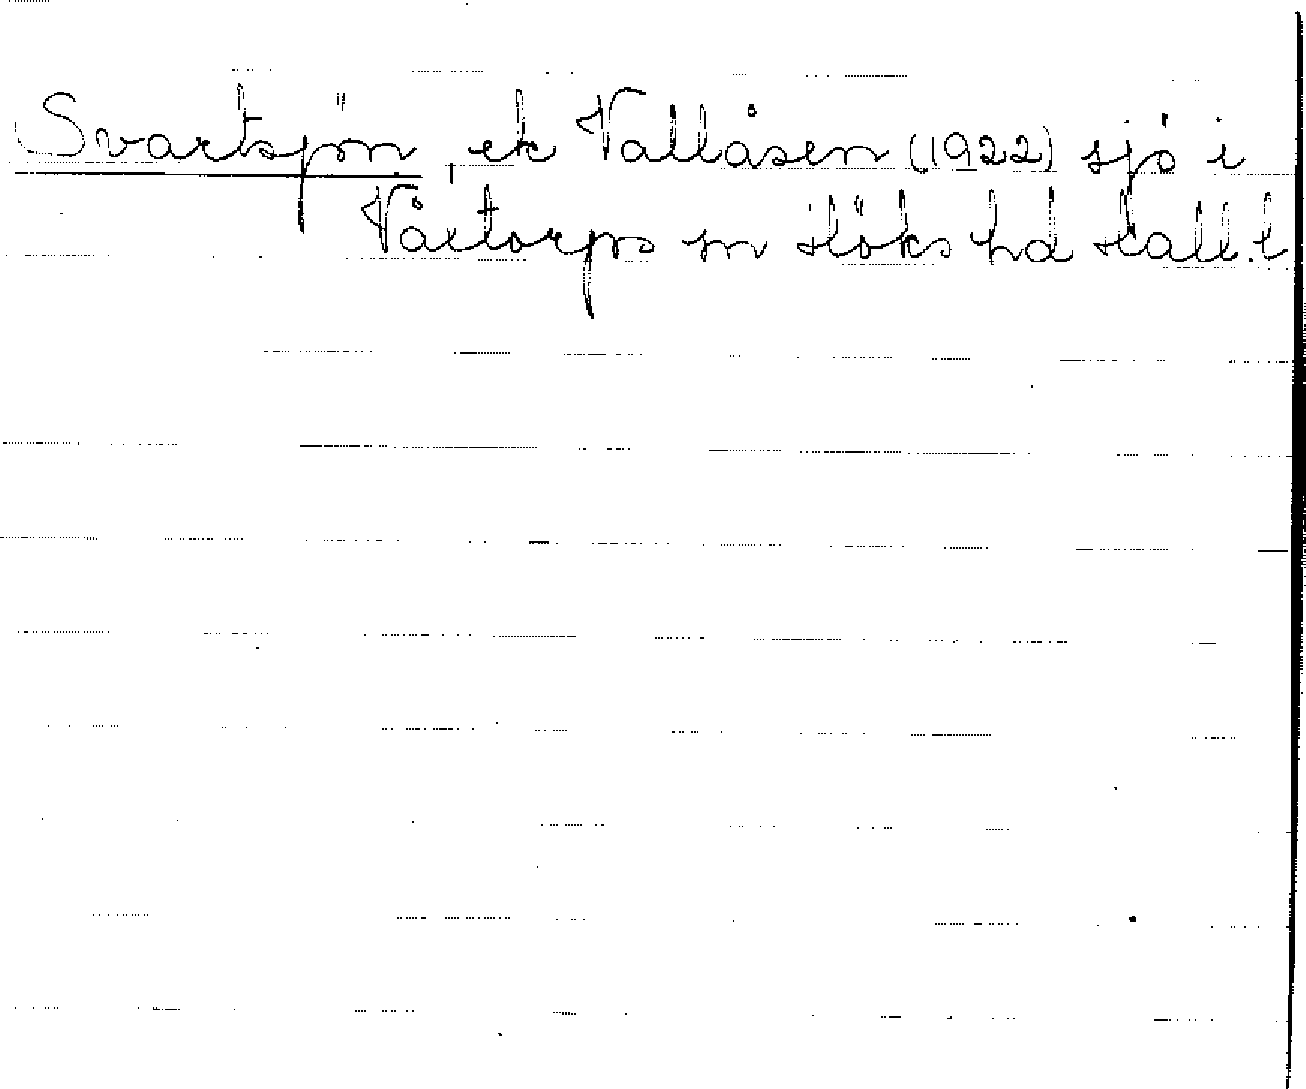 Svartsjön, ek Vallåsen (1922) sjö i
Våxtorps sn Höks hd Hall. l